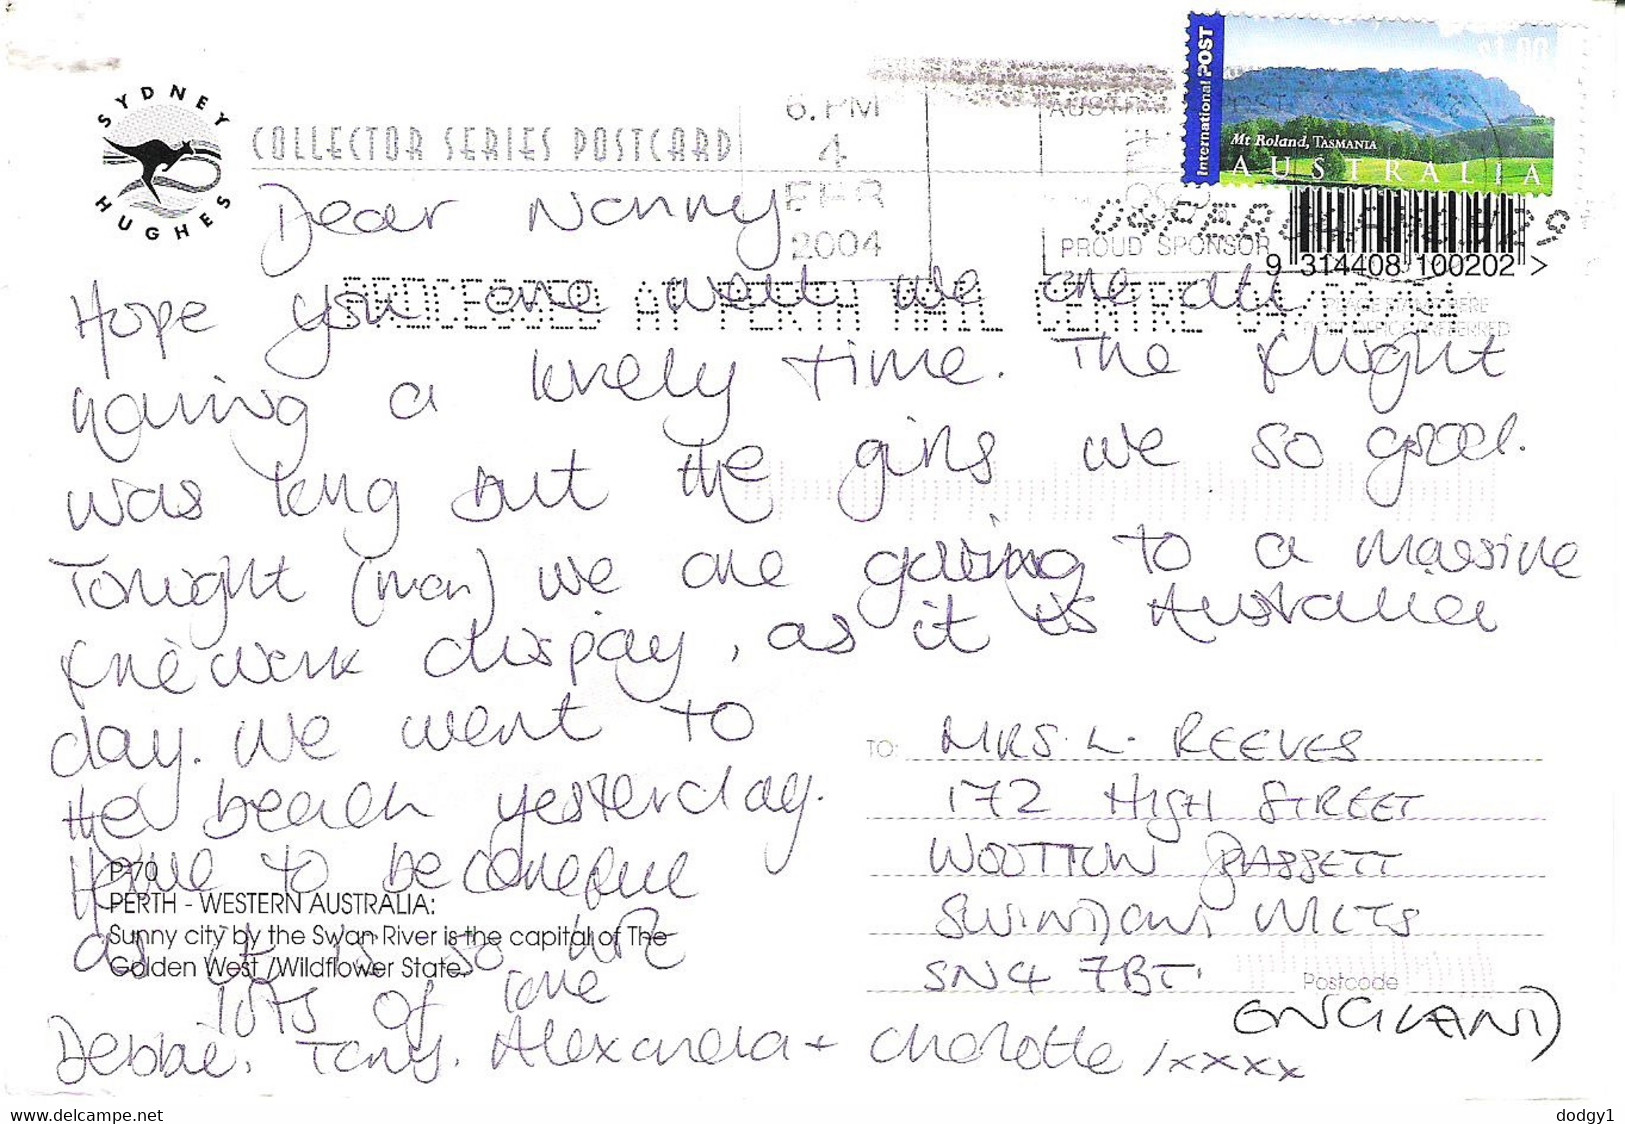 SYDNEY
HUGHES
COLLECTOR SERIES POSTCARD
6. PM
4
FEB
2004
AUSTRALIA POST
PROUD SPONSOR
International POST
$1.00
Mt Roland, TASMANIA
AUSTRALIA
9 314408 100202 >
PROCESSED AT PERTH MAIL CENTRE
Dear Nanny
Hope you are well we are all
having a lovely time. The flight
was long but the girls we so good.
Tonight (mon) we are going to a massive
firework display, as it is Australia
day. We went to
the beach yesterday.
Have to be careful
as it is so hot
lots of love
Debbie, Tony, Alexandra + Charlotte /xxxx
P-70
PERTH - WESTERN AUSTRALIA:
Sunny city by the Swan River is the capital of The
Golden West /Wildflower State.
TO: MRS. L. REEVES
172 HIGH STREET
WOOTTON BASSETT
SWINDON WILTS
SN4 7BT.
Postcode
ENGLAND
www.delcampe.net
dodgy1